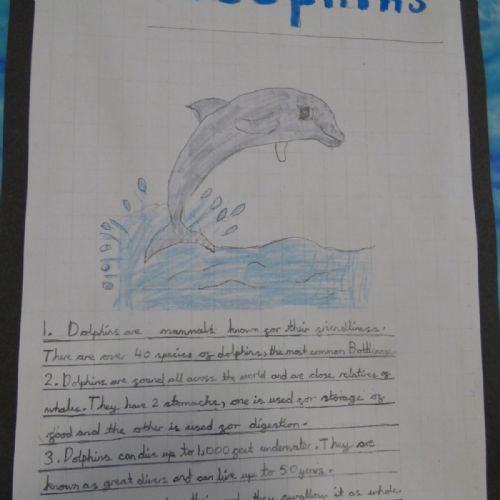 Dolphins
1. Dolphins are mammals known for their friendliness.
There are over 40 species of dolphins, the most common Bottlenose
2. Dolphins are found all across the world and are close relatives of
whales. They have 2 stomachs, one is used for storage of
food and the other is used for digestion.
3. Dolphins can dive up to 1,000 feet underwater. They are
known as great divers and can live up to 50 years.
their and they swallow it as whole.